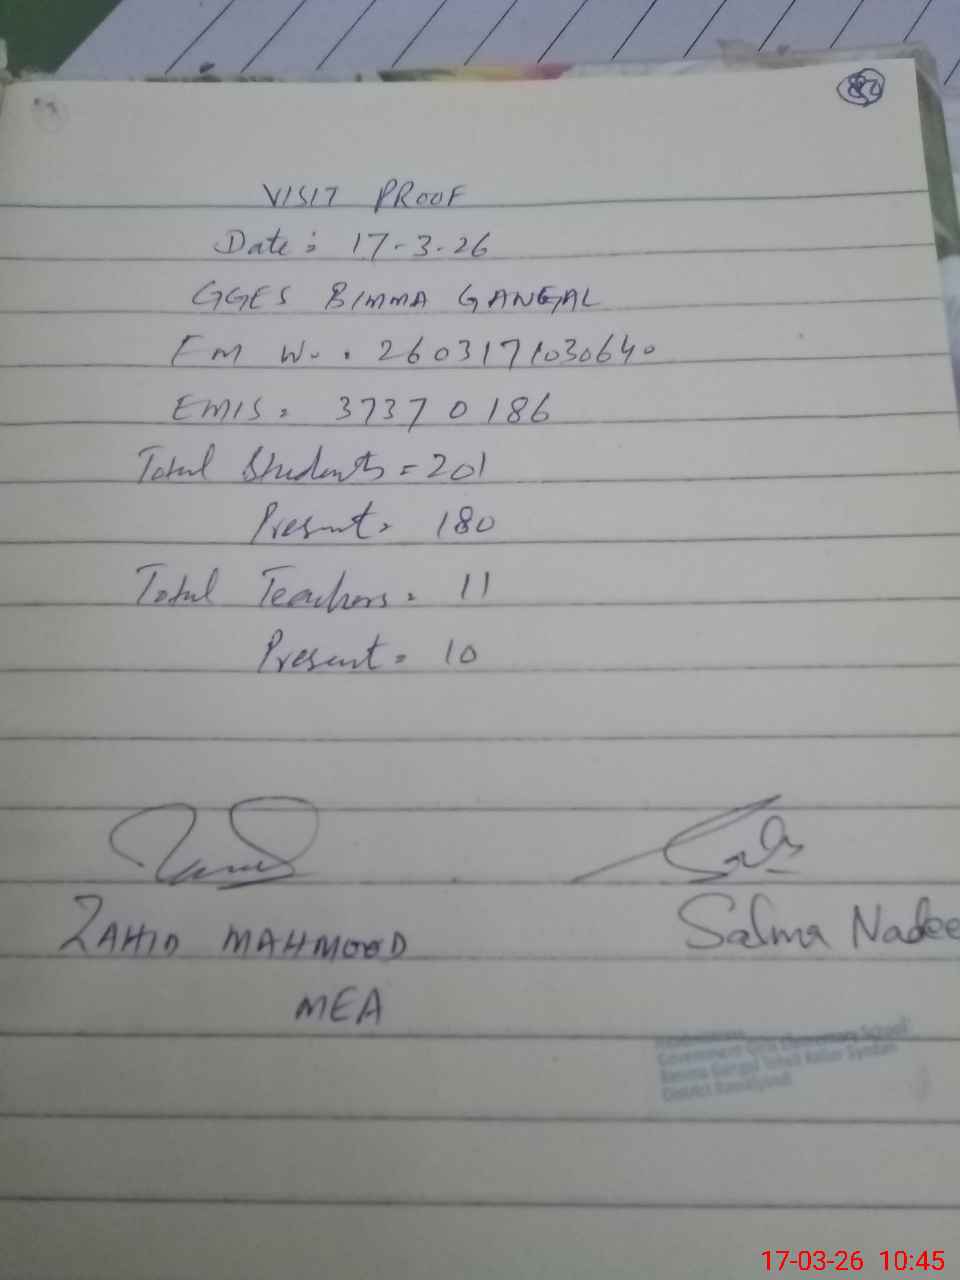 82
VISIT PROOF
Date: 17-3-26
GGES BIMMA GANGAL
Fm No. 2603171030640
EMIS = 37370186
Total Students = 201
Present = 180
Total Teachers = 11
Present = 10
ZAHID MAHMOOD
Salma Nadee
MEA
Government Girls Elementary School
Gangal Tehsil Kallar Syedan
District Rawalpindi
17-03-26 10:45